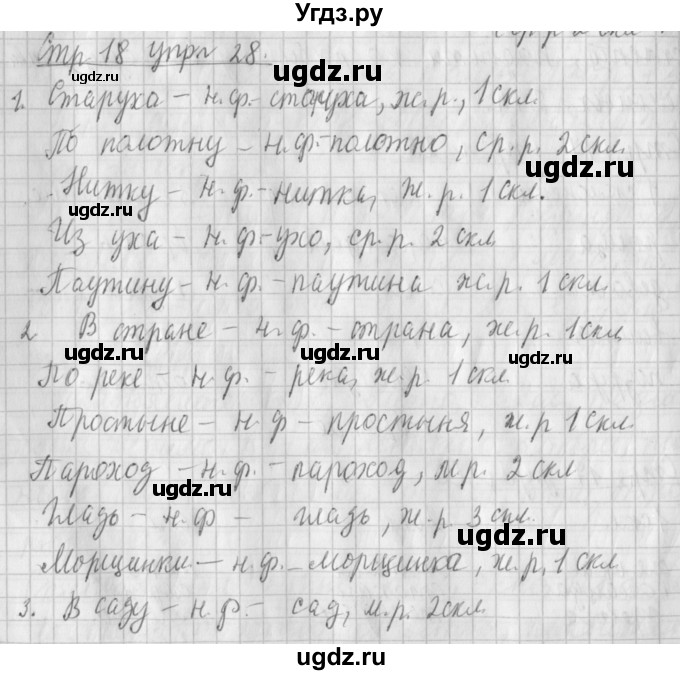 Угдз.ру
Стр 18 упрл 28.
1. Старуха – н.ф.- старуха, ж.р., 1скл.
По полотну – н.ф.- полотно, ср.р. 2 скл.
Нитку – н.ф.- нитка, ж.р. 1 скл.
Из уха – н.ф.- ухо, ср.р. 2 скл
Паутину – н.ф.- паутина ж.р. 1 скл.
2. В стране – н.ф.- страна, ж.р. 1скл
По реке – н.ф.- река, ж.р. 1 скл.
Простыне – н.ф – простыня, ж.р 1 скл.
Пароход – н.ф.- пароход, м.р. 2 скл
Гладь – н.ф – гладь, ж.р. 3 скл.
Морщинки – н.ф.- морщинка, ж.р, 1 скл
3. В саду – н.ф.- сад, м.р. 2скл
ugdz.ru
ugdz.ru
ugdz.ru
ugdz.ru
ugdz.ru
ugdz.ru
ugdz.ru
ugdz.ru
ugdz.ru
ugdz.ru
ugdz.ru
ugdz.ru